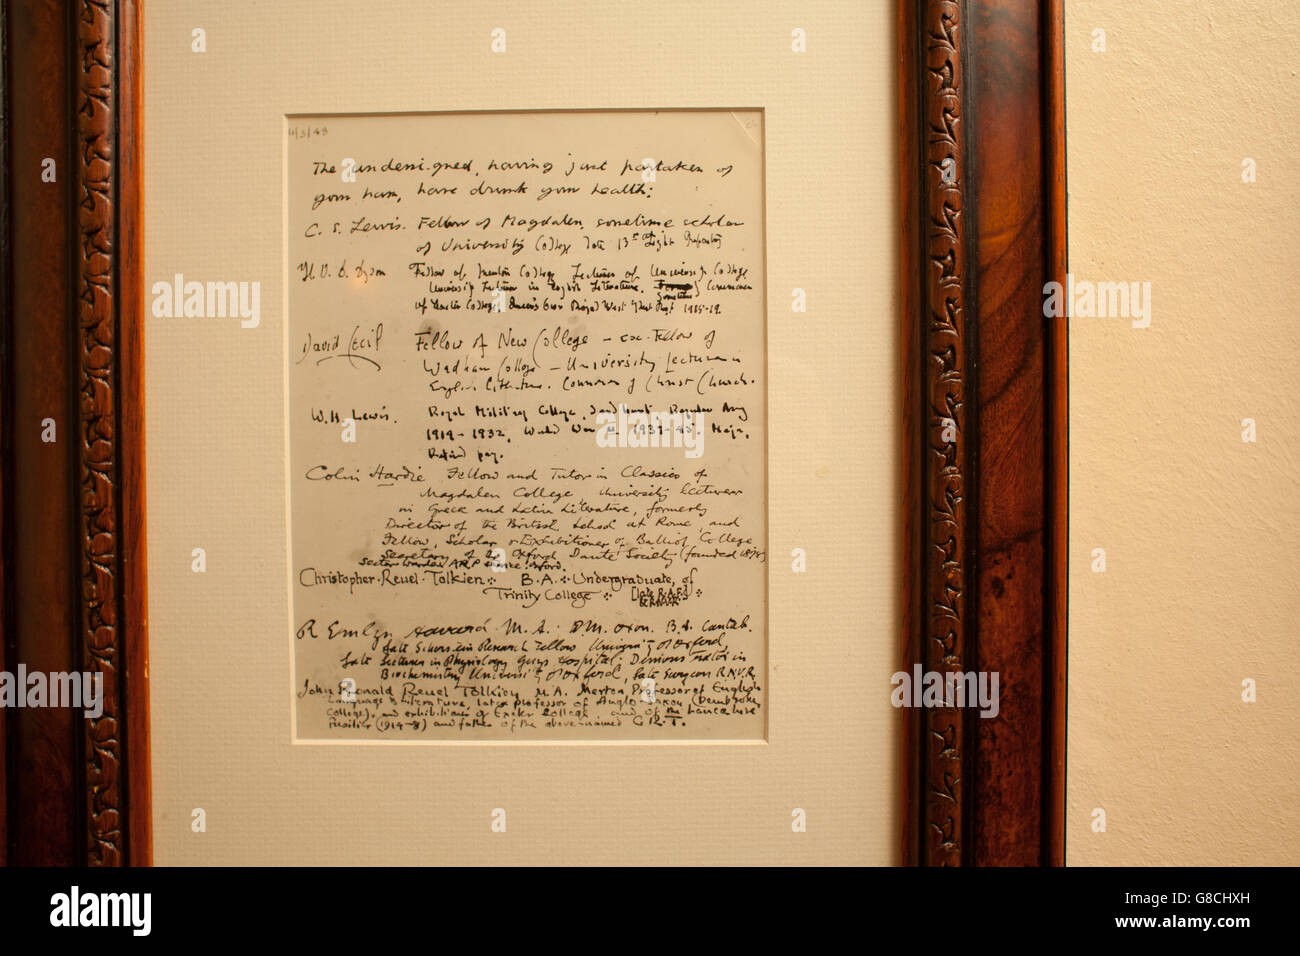 11/3/48
The undersigned, having just partaken of
your ham, have drunk your health:
C. S. Lewis. Fellow of Magdalen, sometime scholar
of University College late 13th Light Infantry
H. V. D. Dyson Fellow of Merton College Lecturer of University College
University Lecturer in English Literature, sometime
of Exeter College, Queen's Own Royal West Kent Regt 1915-19.
David Cecil Fellow of New College — ex-Fellow of
Wadham College — University Lecturer in
English Literature. Commoner of Christ Church.
W. H. Lewis. Royal Military College, Sandhurst, Regular Army
1914-1932, World War II 1939-45. Major,
Retired pay.
Colin Hardie Fellow and Tutor in Classics of
Magdalen College, University lecturer
in Greek and Latin Literature, formerly
Director of the British School at Rome, and
Fellow, Scholar & Exhibitioner of Balliol College
Secretary of the Oxford Dante Society (founded 1876)
Sector Warden ARP service Oxford.
Christopher Reuel Tolkien B.A. Undergraduate, of
Trinity College [late R.A.F.
& R.N.V.R.]
R Emlyn Havard. M.A.; D.M. Oxon. B.A. Cantab.
late Research Fellow University of Oxford
late Lecturer in Physiology Guys Hospital; Demonstrator in
Biochemistry University of Oxford, late Surgeon R.N.V.R.
John Ronald Reuel Tolkien M.A. Merton Professor of English
Language & Literature, late professor of Anglo-Saxon (Pembroke
College), and exhibitioner of Exeter College and of the Lancashire
Fusiliers (1914-8) and father of the above-named C.R.T.
a alamy
alamy
Image ID: G8CHXH
www.alamy.com